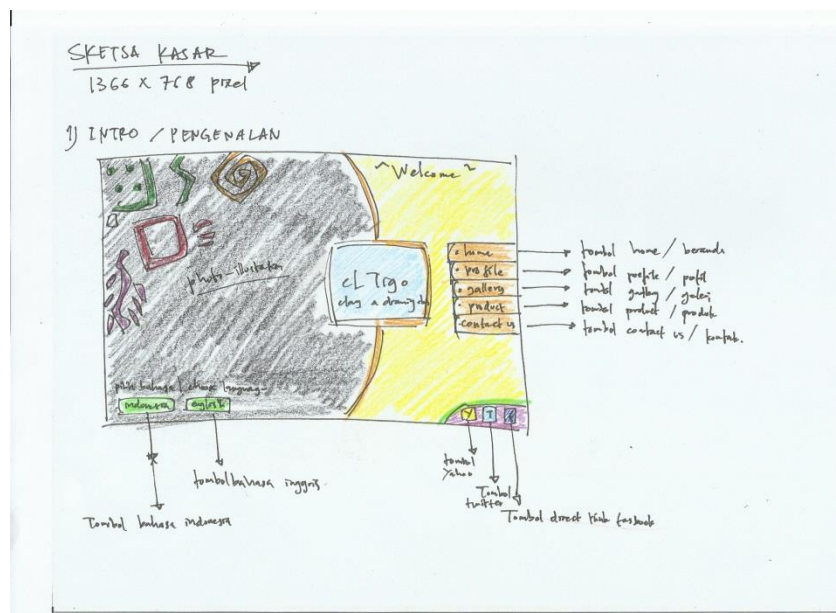 SKETSA KASAR
1366 X 768 pixel
1) INTRO / PENGENALAN
"Welcome"
photo-illustration
home
profile
gallery
product
contact us
tombol home / beranda
tombol profile / profil
tombol gallery / galeri
tombol product / produk
tombol contact us / kontak.
pilih bahasa / change language
indonesia
english
Y
T
tombol bahasa inggris
Tombol bahasa indonesia
tombol
Yahoo
Tombol
twitter
Tombol direct link